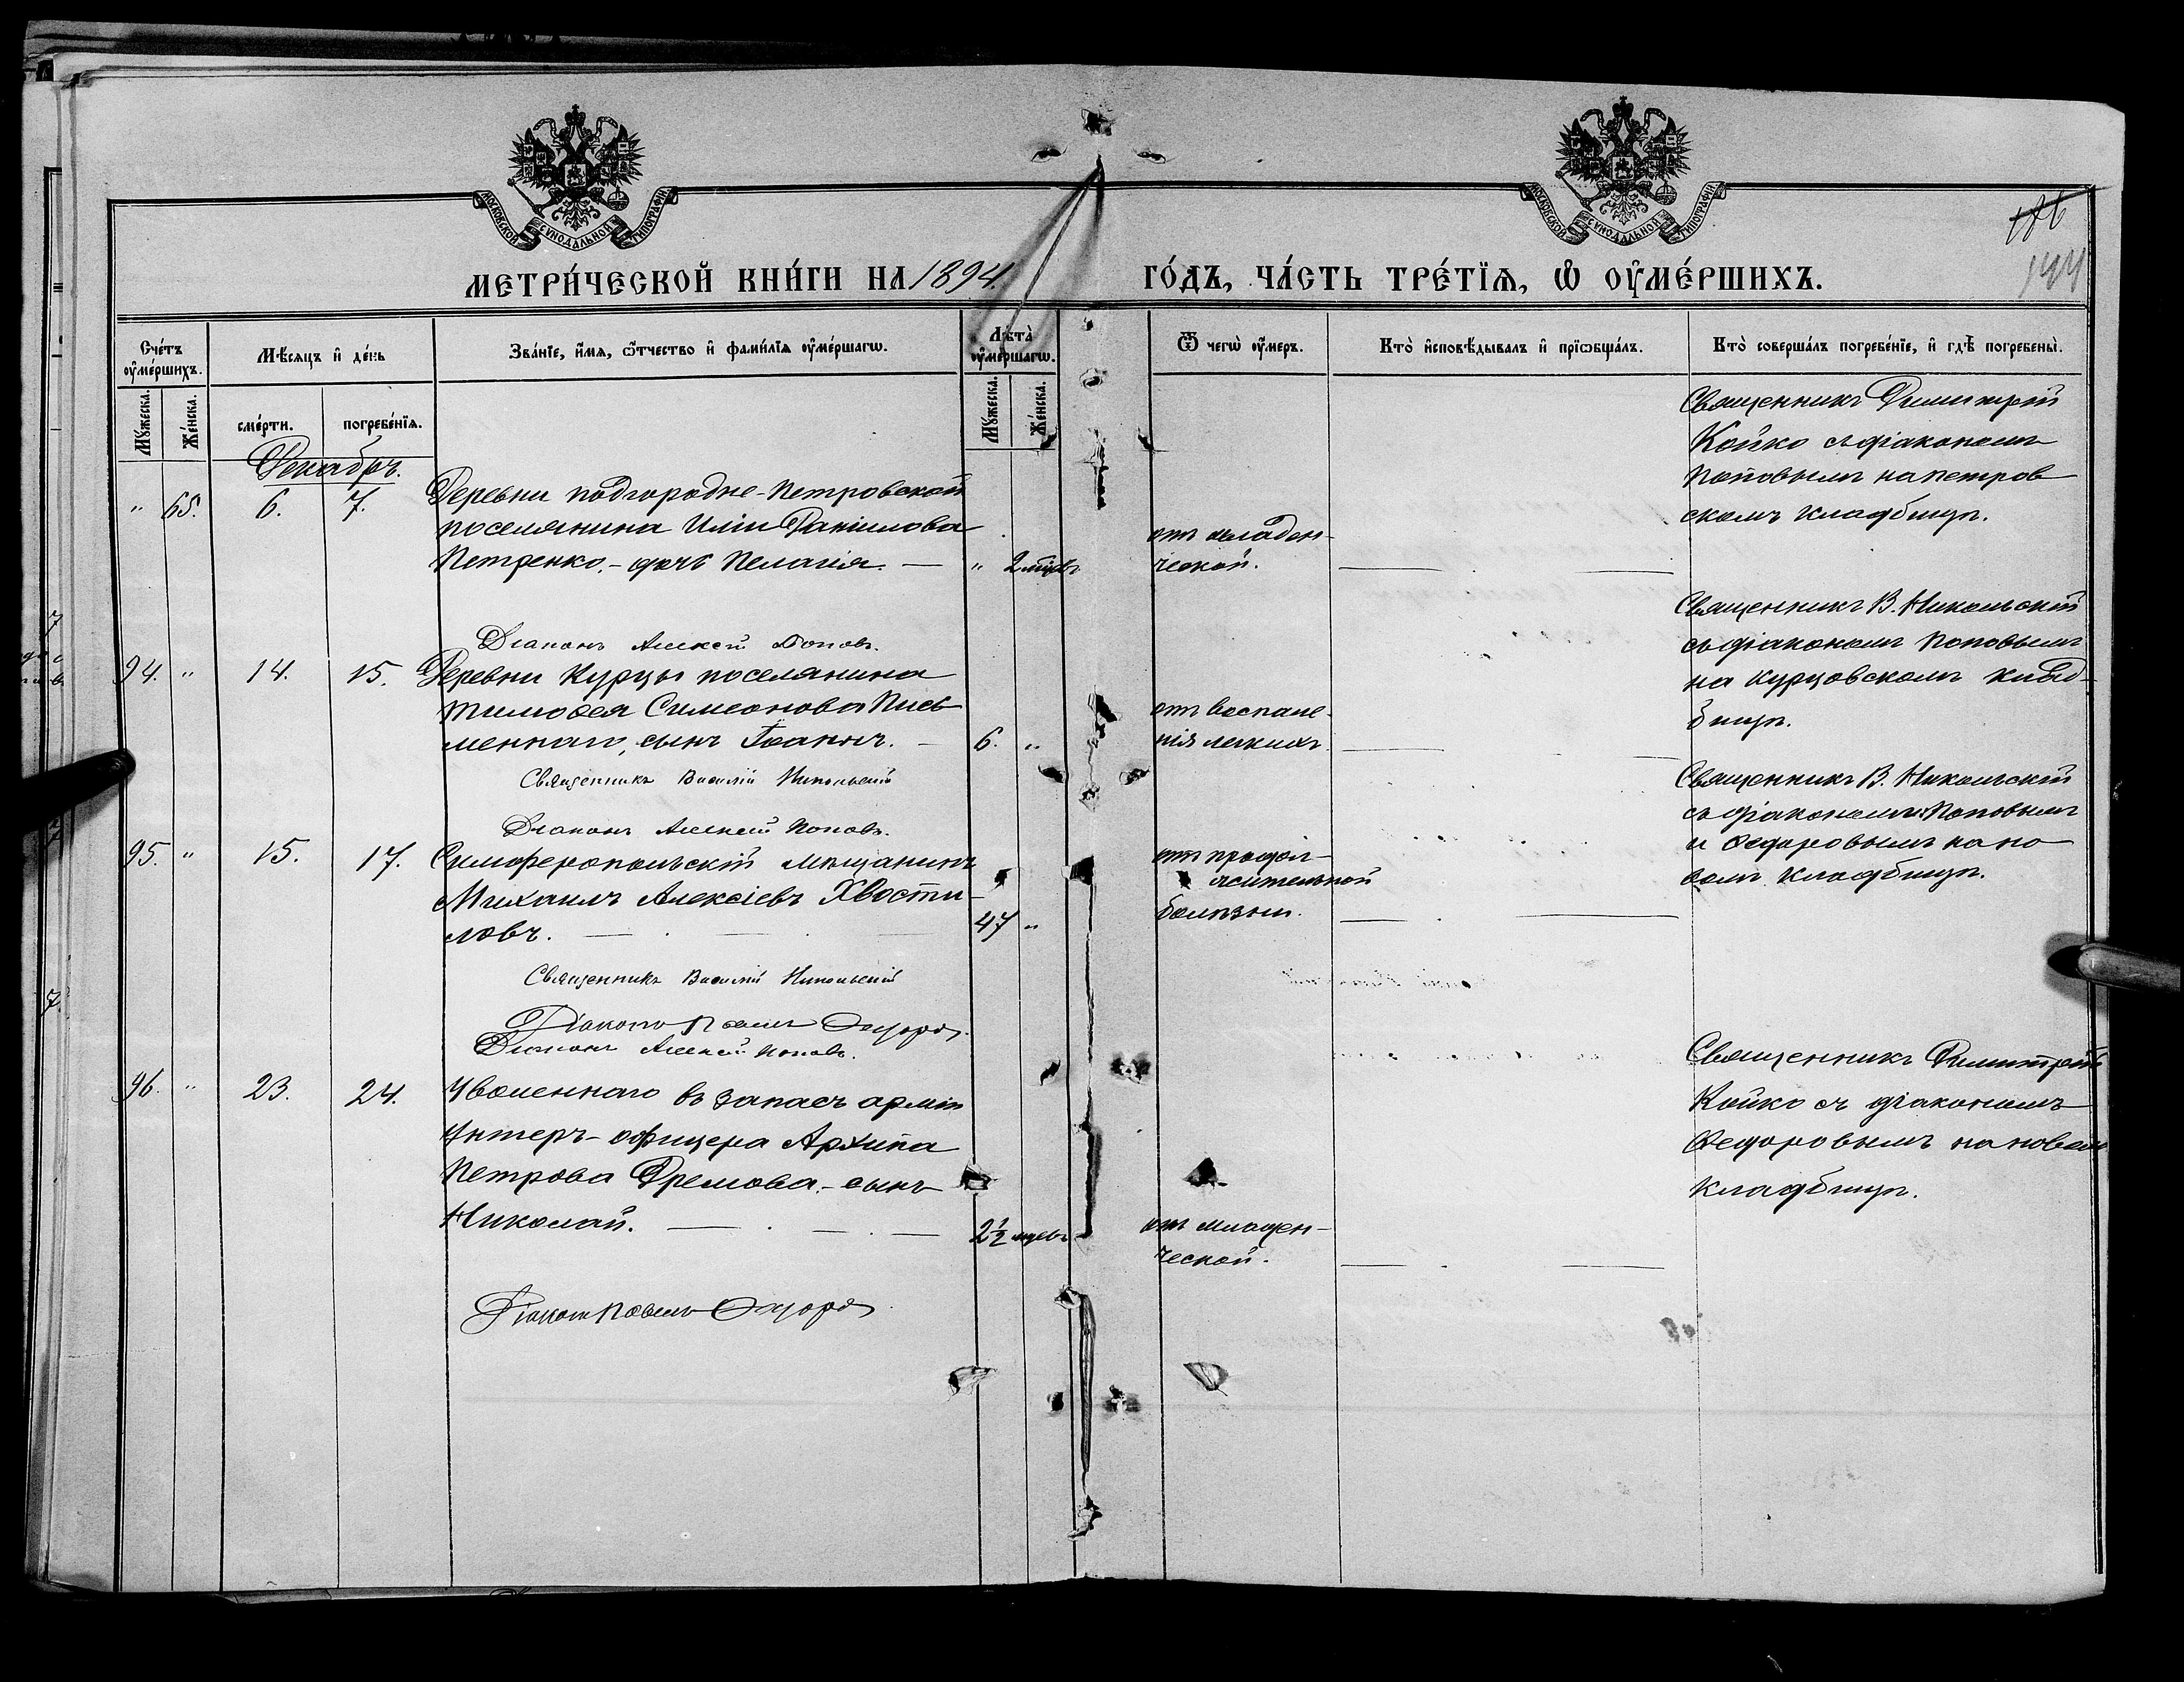 МОСКОВСКОЙ СУНОДАЛЬНОЙ ТИПОГРАФІИ
МОСКОВСКОЙ СУНОДАЛЬНОЙ ТИПОГРАФІИ
186
144
МЕТРИ́ЧЕСКОЙ КНИ́ГИ НА 1894. ГО́ДЪ, ЧА́СТЬ ТРЕ́ТЇѦ, Ѡ҆ ОУ҆МЕ́РШИХЪ.
Сче́тъ оу҆ме́ршихъ.
Мѣ́сяцъ и҆ де́нь
Зва́нїе, и҆́мѧ, ѻ҆́тчество и҆ фами́лїѧ оу҆ме́ршагѡ.
Лѣ́та оу҆ме́ршагѡ.
Ѿ чегѡ̀ оу҆́меръ.
Кто̀ и҆сповѣ́дывалъ и҆ прїѡбща́лъ.
Кто̀ соверша́лъ погребе́нїе, и҆ гдѣ̀ погребены̀.
Мꙋ́жеска.
Же́нска.
сме́рти.
погребе́нїѧ.
Мꙋ́жеска.
Же́нска.
Декабрь.
" 65. 6. 7. Деревни подгородне-Петровской
поселянина Иліи Даніилова
Петренко,- дочь Пелагія. — " 2 мѣсяц.
от младен-
ческой.
Священникъ Димитрій
Койко съ діакономъ
Поповымъ на петров
скомъ кладбищѣ.
Діаконъ Алексѣй Поповъ.
94. " 14. 15. Деревни Курцы поселянина
Тимофея Симеонова Пись
меннаго, сынъ Іоаннъ. — 6. "
отъ воспале-
нія легкихъ
Священникъ В. Никольскій
съ діакономъ Поповымъ
на Курцовскомъ клад-
бищѣ.
Священникъ Василій Никольскій
Діаконъ Алексѣй Поповъ.
95. " 15. 17. Симферопольскій мѣщанинъ
Михаилъ Алексіевъ Хвости-
ловъ. — 47 "
отъ продол-
жительной
болѣзни.
Священникъ В. Никольскій
съ діакономъ Поповымъ
и Федоровымъ на но
вомъ кладбищѣ.
Священникъ Василій Никольскій
Діаконъ Павелъ Федоровъ
Діаконъ Алексѣй Поповъ.
96. " 23. 24. Уволеннаго въ запасъ арміи
Унтеръ-офицера Архипа
Петрова Дремова,- сынъ
Николай. — 2½ мцевъ
отъ младен-
ческой.
Священникъ Димитрій
Койко съ діакономъ
Федоровымъ на новомъ
кладбищѣ.
Діаконъ Павелъ Федоровъ